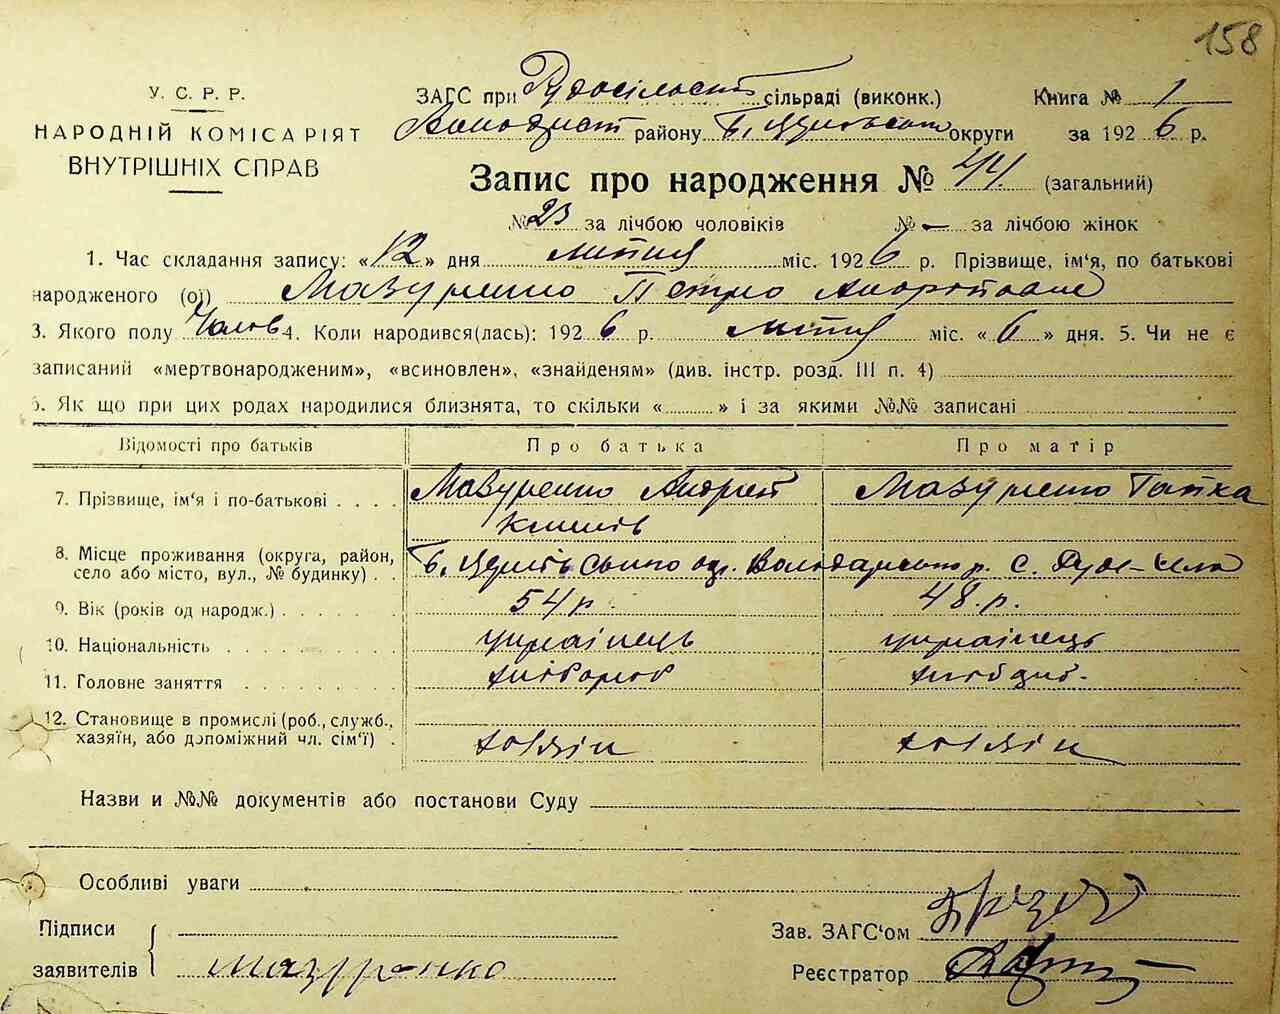 158
У. С. Р. Р.
НАРОДНІЙ КОМІСАРІЯТ
ВНУТРІШНІХ СПРАВ
ЗАГС при Рудосільській сільраді (виконк.) Книга № 1
Володарськ району Б. Церківської округи за 1926 р.
Запис про народження № 44 (загальний)
№ 23 за лічбою чоловіків № — за лічбою жінок
1. Час складання запису: «12» дня липня міс. 1926 р. Прізвище, ім'я, по батькові
народженого (ої) Мазуренко Петро Андрійович
3. Якого полу Чолов 4. Коли народився(лась): 1926 р. липня міс. «6» дня. 5. Чи не є
записаний «мертвонародженим», «всиновлен», «знайденям» (див. інстр. розд. III п. 4)
6. Як що при цих родах народилися близнята, то скільки «» і за якими №№ записані
Відомості про батьків Про батька Про матір
7. Прізвище, ім'я і по-батькові Мазуренко Андрей Мазуренко Гапка
Климів
8. Місце проживання (округа, район,
село або місто, вул., № будинку) Б. Церківського окр. Володарського р. с. Рудe-Село
9. Вік (років од народж.) 54 р. 48 р.
10. Національність українець українець
11. Головне заняття хлібороб хлібороб
12. Становище в промислі (роб., служб.,
хазяїн, або допоміжний чл. сім'ї) хазяін хазяін
Назви и №№ документів або постанови Суду
Особливі уваги
Підписи
заявителів Мазуренко
Зав. ЗАГС'ом
Реєстратор